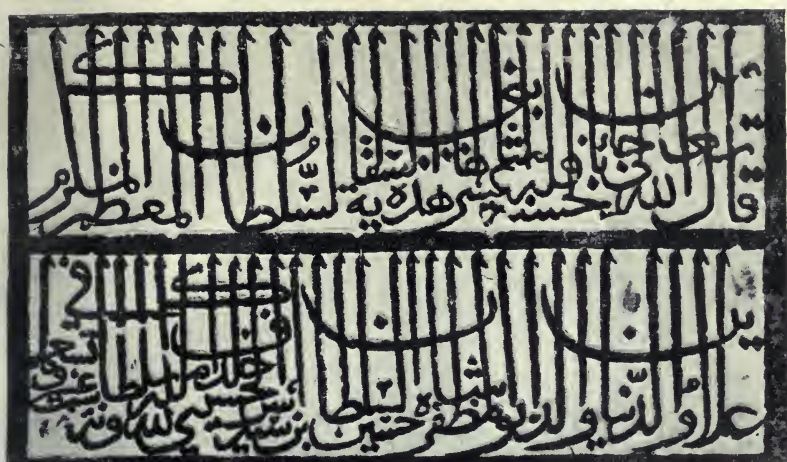 قال الله تعالى من جاء بالحسنة فله عشر امثالها هذه السقاية السلطان المعظم المكرم
علاء الدنيا والدين ابو المظفر حسين شاه السلطان بن سيد اشرف الحسيني خلد الله ملكه وسلطانه في سنة